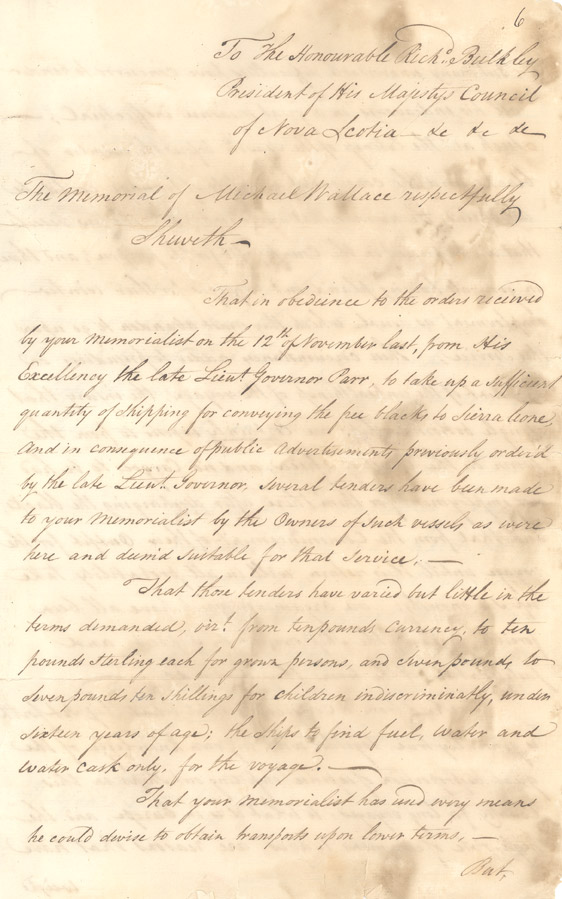 6
To The Honourable Rich.d Bulkley
President of His Majestys Council
of Nova Scotia &c &c &c
The Memorial of Michael Wallace respectfully
Sheweth —
That in obedience to the orders received
by your Memorialist on the 12th of November last, from His
Excellency the late Lieut. Governor Parr, to take up a sufficient
quantity of Shipping for conveying the free blacks to Sierra leone,
And in consequence of public Advertisements previously order'd
by the late Lieut. Governor, Several tenders have been made
to your Memorialist by the Owners of such vessels as were
here and deem'd suitable for that Service. —
That those tenders have varied but little in the
terms demanded, vizt. from ten pounds Currency, to ten
pounds Sterling each for grown persons, and Seven pounds to
Seven pounds ten Shillings for Children indiscriminatly, under
Sixteen years of age; the Ships to find fuel, water and
water cask only, for the voyage. —
That your Memorialist has used every means
he could devise to obtain transports upon lower terms, —
But,